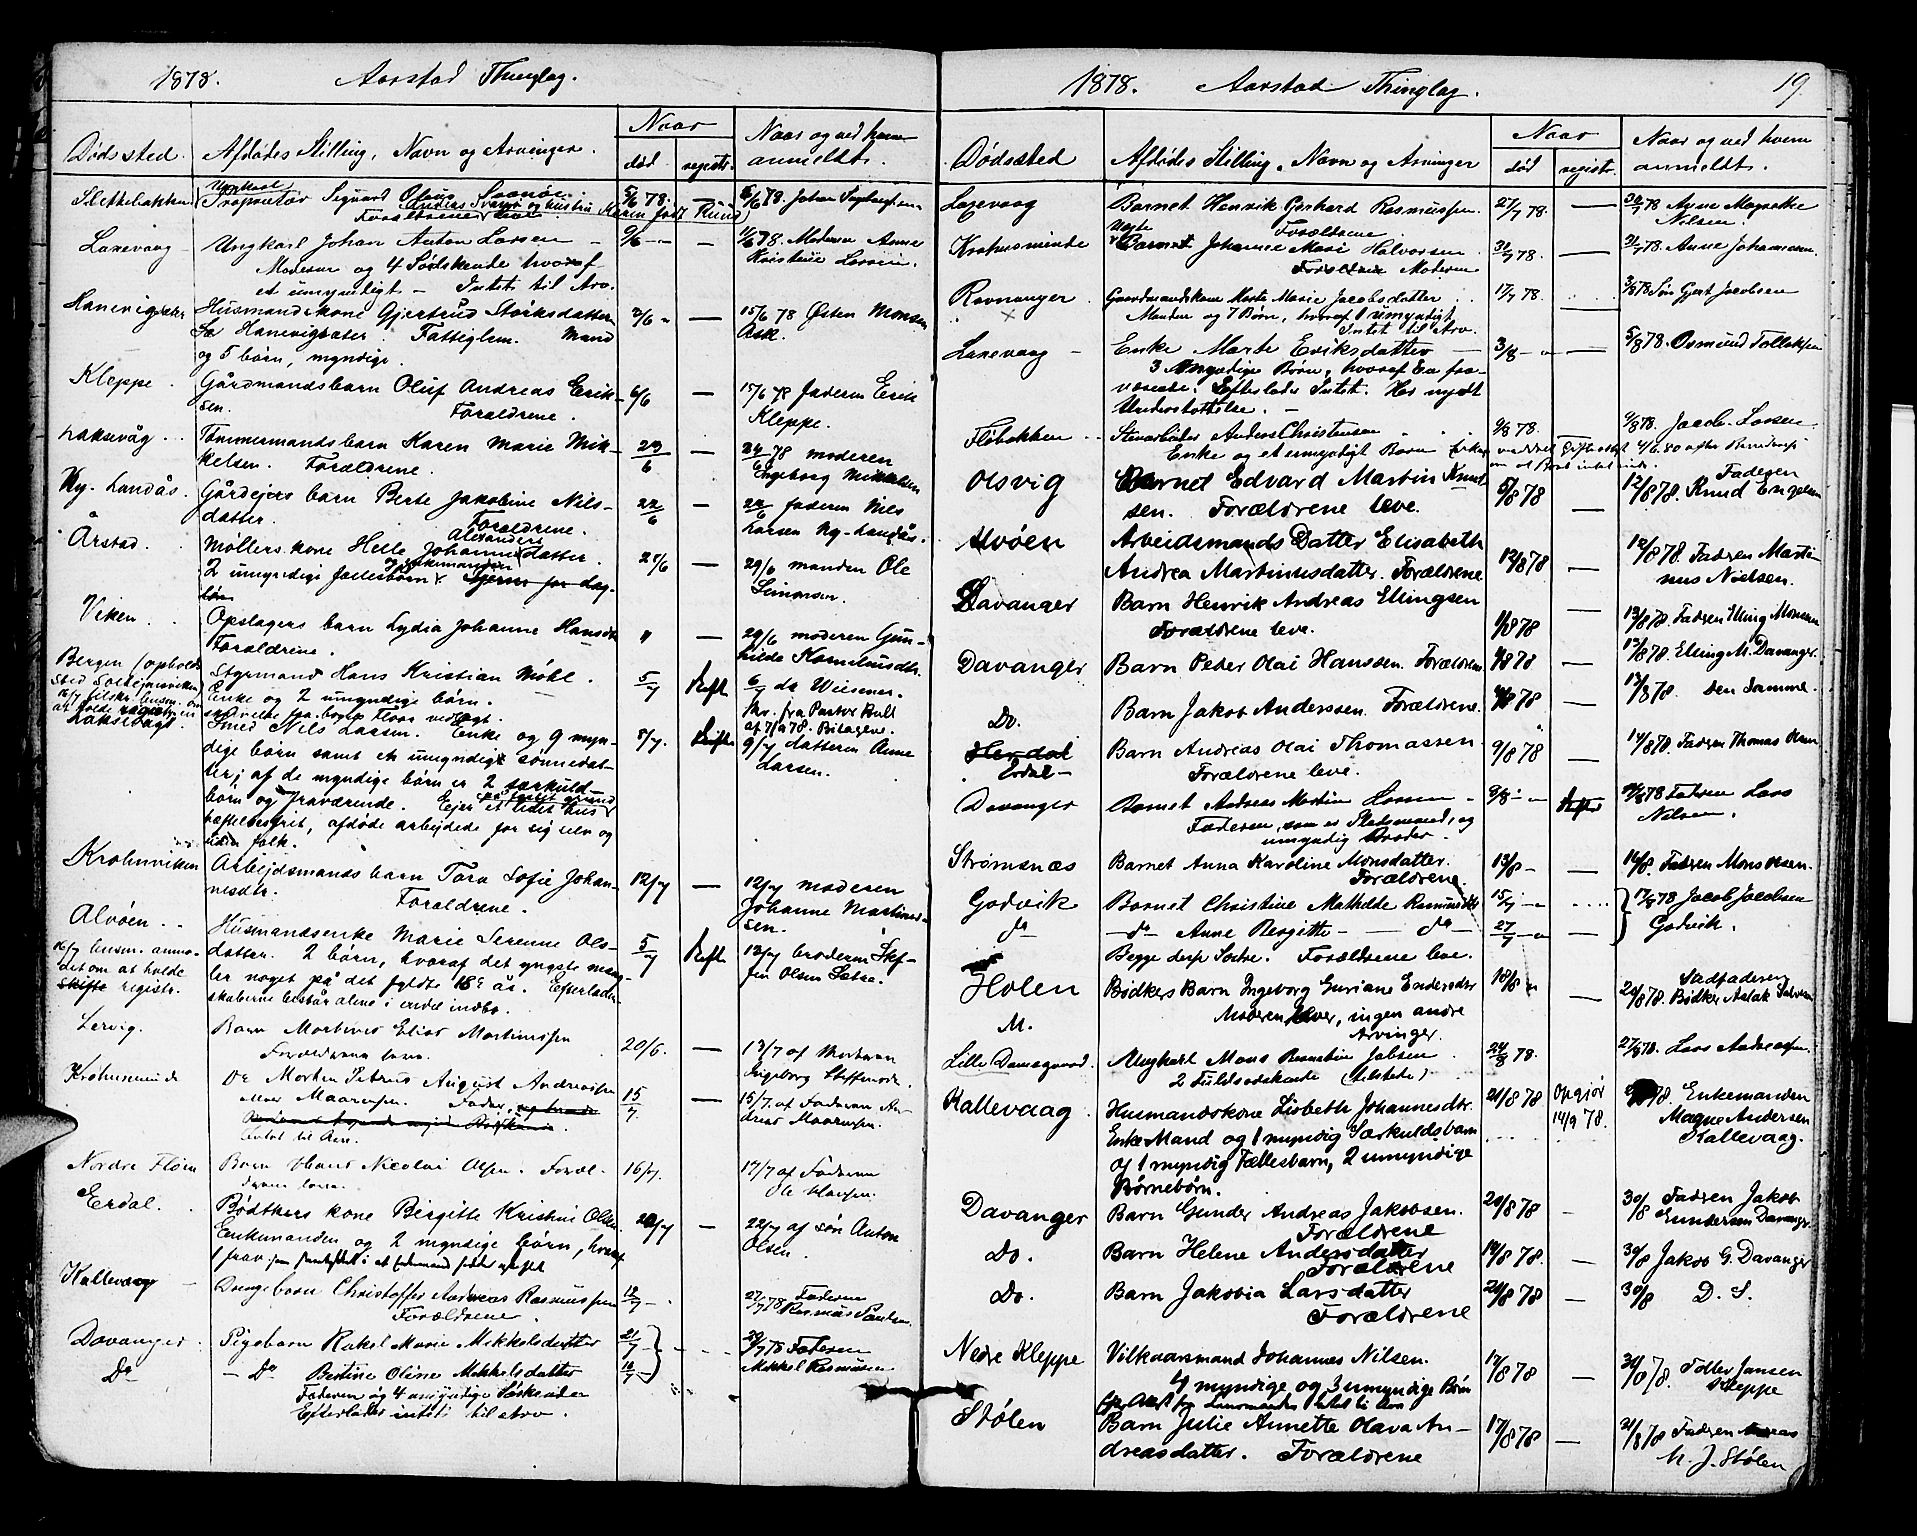 1878. Aarstad Thinglag.
Dødssted. Afdødes Stilling, Navn og Arvinger. Naar død registr. Naar og ved hvem anmeldt.
Ungkarl Olaus
Proprietær Sigvard Svanøe. 5/6 78. — 6/6 78. Johan
Forældrene leve.
Laxevaag — Ungkarl Johan Anton Larsen — 9/6 — 11/6 78. Moderen Anne
Moderen og 4 Sødskende hvoraf Kristine Larsen.
et umyndigt — Intet til Arv.
Husmandskone Gjertrud Størksdatter 2/6 — 15/6 78 Østen Monsen
Fattiglem. Mand Ask.
og 5 børn, myndige.
Kleppe. Gårdmandsbarn Oluf Andreas Erik- 6/6 — 15/6 78 Faderen Erik
sen. Forældrene. Kleppe.
Laksevåg. Tømmermandsbarn Karen Marie Mik- 23/6 — 24/6 78 moderen
kelsen. Forældrene. Ingeborg Mikkelsen
Ny-Landås. Gårdejers barn Berte Jakobine Nils- 22/6 — faderen Nils
datter. Forældrene. Larsen Ny-Landås.
Årstad. Møllers kone Helle Johannesdatter. 27/6 — 29/6 manden Ole
2 umyndige fællesbørn Simonsen.
Viken. Opslagers barn Lydia Johanne Hansdtr — 29/6 moderen Gun-
Forældrene. hilde Kornelius dtr.
Bergen (opholds- Styrmand Hans Kristian Møhl. 5/7 Skifte 6/7
sted Solheimsviken) Enke og 2 umyndige børn.
Laksevågt. Smed Nils Larsen. Enke og 9 myn- 8/7. Skifte 9/7 datteren Anne
dige børn samt en umyndig sønnedat- Larsen.
ter; af de myndige børn er 2 særkuld-
børn og fraværende. Ejer et lidet hus
afdøde arbejdede for sig selv og
uden folk.
Krohnviken Arbejdsmands barn Tora Sofie Johan- 12/7 — 12/7 moderen
nesdtr. Forældrene. Johanne Martined-
sen.
Alvøen. Husmandsenke Marie Serenne Ols- 5/7 Skifte 13/7 broderen Stef-
datter. 2 børn, hvoraf det yngste mang- fen Olsen Sætre.
det om at holde ler noget på det fyldte 18de år. Efterladen-
skifte registr. skaberne består alene i endel indbo.
Lervig. Barn Martinus Elias Martinussen 20/6. — 13/7 af Moderen
Forældrene leve. Ingeborg Steffensdr.
Krohnsminde Do Morten Petrus August Andreassen 15/7. — 15/7. af Faderen An-
Moer Maarensen. Fader, dreas Maarensen.
intet til Arv.
Nordre Fløen Barn Hans Nicolai Olsen. Foræl- 16/7. 17/7 af Faderen
drene leve. Ole Hansen.
Eerdal. Bødtkers kone Birgitte Kristine Olsen 20/7 — 22/7 af søn Anton
Enkemanden og 2 myndige børn, hvoraf Olsen.
1 frav.
Kallevaag — Drengebarn Christoffer Andreas Rasmussen 18/7 — 27/7 78 Faderen
Forældrene. Rasmus Paulsen.
Davanger. Pigebarn Rakel Marie Mikkelsdatter 21/7 29/7 78 Faderen
Do — Do Bertine Oline Mikkelsdatter 18/7 Mikkel Rasmussen
Faderen og 4 umyndige Søskende
Efterlades intet til arv.
1878. Aarstad Thinglag. 19.
Dødssted Afdødes Stilling, Navn og Arvinger Naar død registr. Naar og ved hvem anmeldt.
Laxevaag Barnet Henrik Gerhard Rasmussen. 27/7 78. — 30/7 78 Anne Margrethe
Forældrene. Nilsen
Krohnsminde Barnet Johanne Marie Halvorsen. 31/7 78. — 31/7 78. Anne Johannesen.
Forældrene Moderen
Ravnanger Gaardmandskone Marte Marie Jacobsdatter 17/7 78. 3/8 78 Søn Gjert Jacobsen
Manden og 7 Børn, hvoraf 1 umyndigt
Intet til arv.
Laxevaag — Enke Marte Eriksdatter — 3/8 — 5/8 78. Osmund Tollefsen
3 Myndige Børn, hvoraf En fra-
værende. Efterlader Intet. Har nydt
Understøttelse. —
Fløbakken Stenarbeider Anders Christensen 2/8 78. Jacob Larsen
Enke og et umyndigt Barn
Olsvig Barnet Edvard Martin Knud- 5/8 78 12/8 78. Faderen Knud Engelsen
sen. Forældrene leve.
Alvøen Arbeidsmands Datter Elisabeth 12/8 78 — 12/8 78. Fadren Marti-
Andrea Martinusdatter. Forældrene nus Nielsen.
Davanger Barn Henrik Andreas Ellingsen 1/8 78 — 13/8 78. Fadren Elling Monsen
Forældrene leve.
Davanger Barn Peder Olai Hanssen. Forældrene 4/8 78 — 13/8 78. Elling M. Davanger.
Do. Barn Jakob Anderssen. Forældrene. — 13/8 78. Den Samme.
Herdal Barn Andreas Olai Thomassen. 9/8 78 — 14/8 78. Fadren Thomas Olsen
Erdal — Forældrene leve.
Davanger Barnet Andreas Martin Hansen — 9/8 — Skifte Fadren Lars
Faderen, som er Fladsmand, og Nilsen.
umyndig Broder.
Strømsnæs Barnet Anna Karoline Monsdatter. 13/8 — — 14/8. Fadren Mons Olsen.
Forældrene.
Godvik Barnet Christine Mathilde Rasmusdtr 15/7 — 17/8 78 Jacob Jacobsen
do — do — Anne Bergitte — do — 27/7 — Godvik.
Begge derfr Søstre. Forældrene leve.
Holen Bødkers Barn Ingeborg Guriane Endersdtr 18/8 — 20/8 78. Stedfaderen Bødker Aslak
M. Moderen lever, ingen andre
Arvinger.
Lille Damsgaard. Ungkarl Mons Berntin Jobsen 24/8 78. 27/8 78. Lars Andreassen.
2 Fuldsødskende (tilstede)
Kallevaag Husmandskone Lisbeth Johannesdtr. 21/8 78 Opgjør 14/9 78. Enkemanden
Enke Mand og 1 myndig Særkuldsbarn Magne Andersen
og 1 myndig Fællesbarn, 2 umyndige Kallevaag.
Børnebørn.
Davanger Barn Gunder Andreas Jakobsen. 20/8 78 — 30/8 Fadren Jakob
Forældrene Gundersen Davanger.
Do. Barn Helene Andersdatter 19/8 78. — 30/8 Jakob G. Davanger
Forældrene
Do. Barn Jakobia Larsdatter 24/8 78 — 30/8 D. S.
Forældrene
Nedre Kleppe Vilkaarsmand Johannes Nilsen. 17/8 78 — 31/8 78. Tollev Jansen
4 myndige og 3 umyndige Børn Kleppe
Stølen Barn Julie Annette Olava An- 17/8 78 — 31/8 78 Fadren Andreas
dreasdatter. Forældrene M. J. Stølen